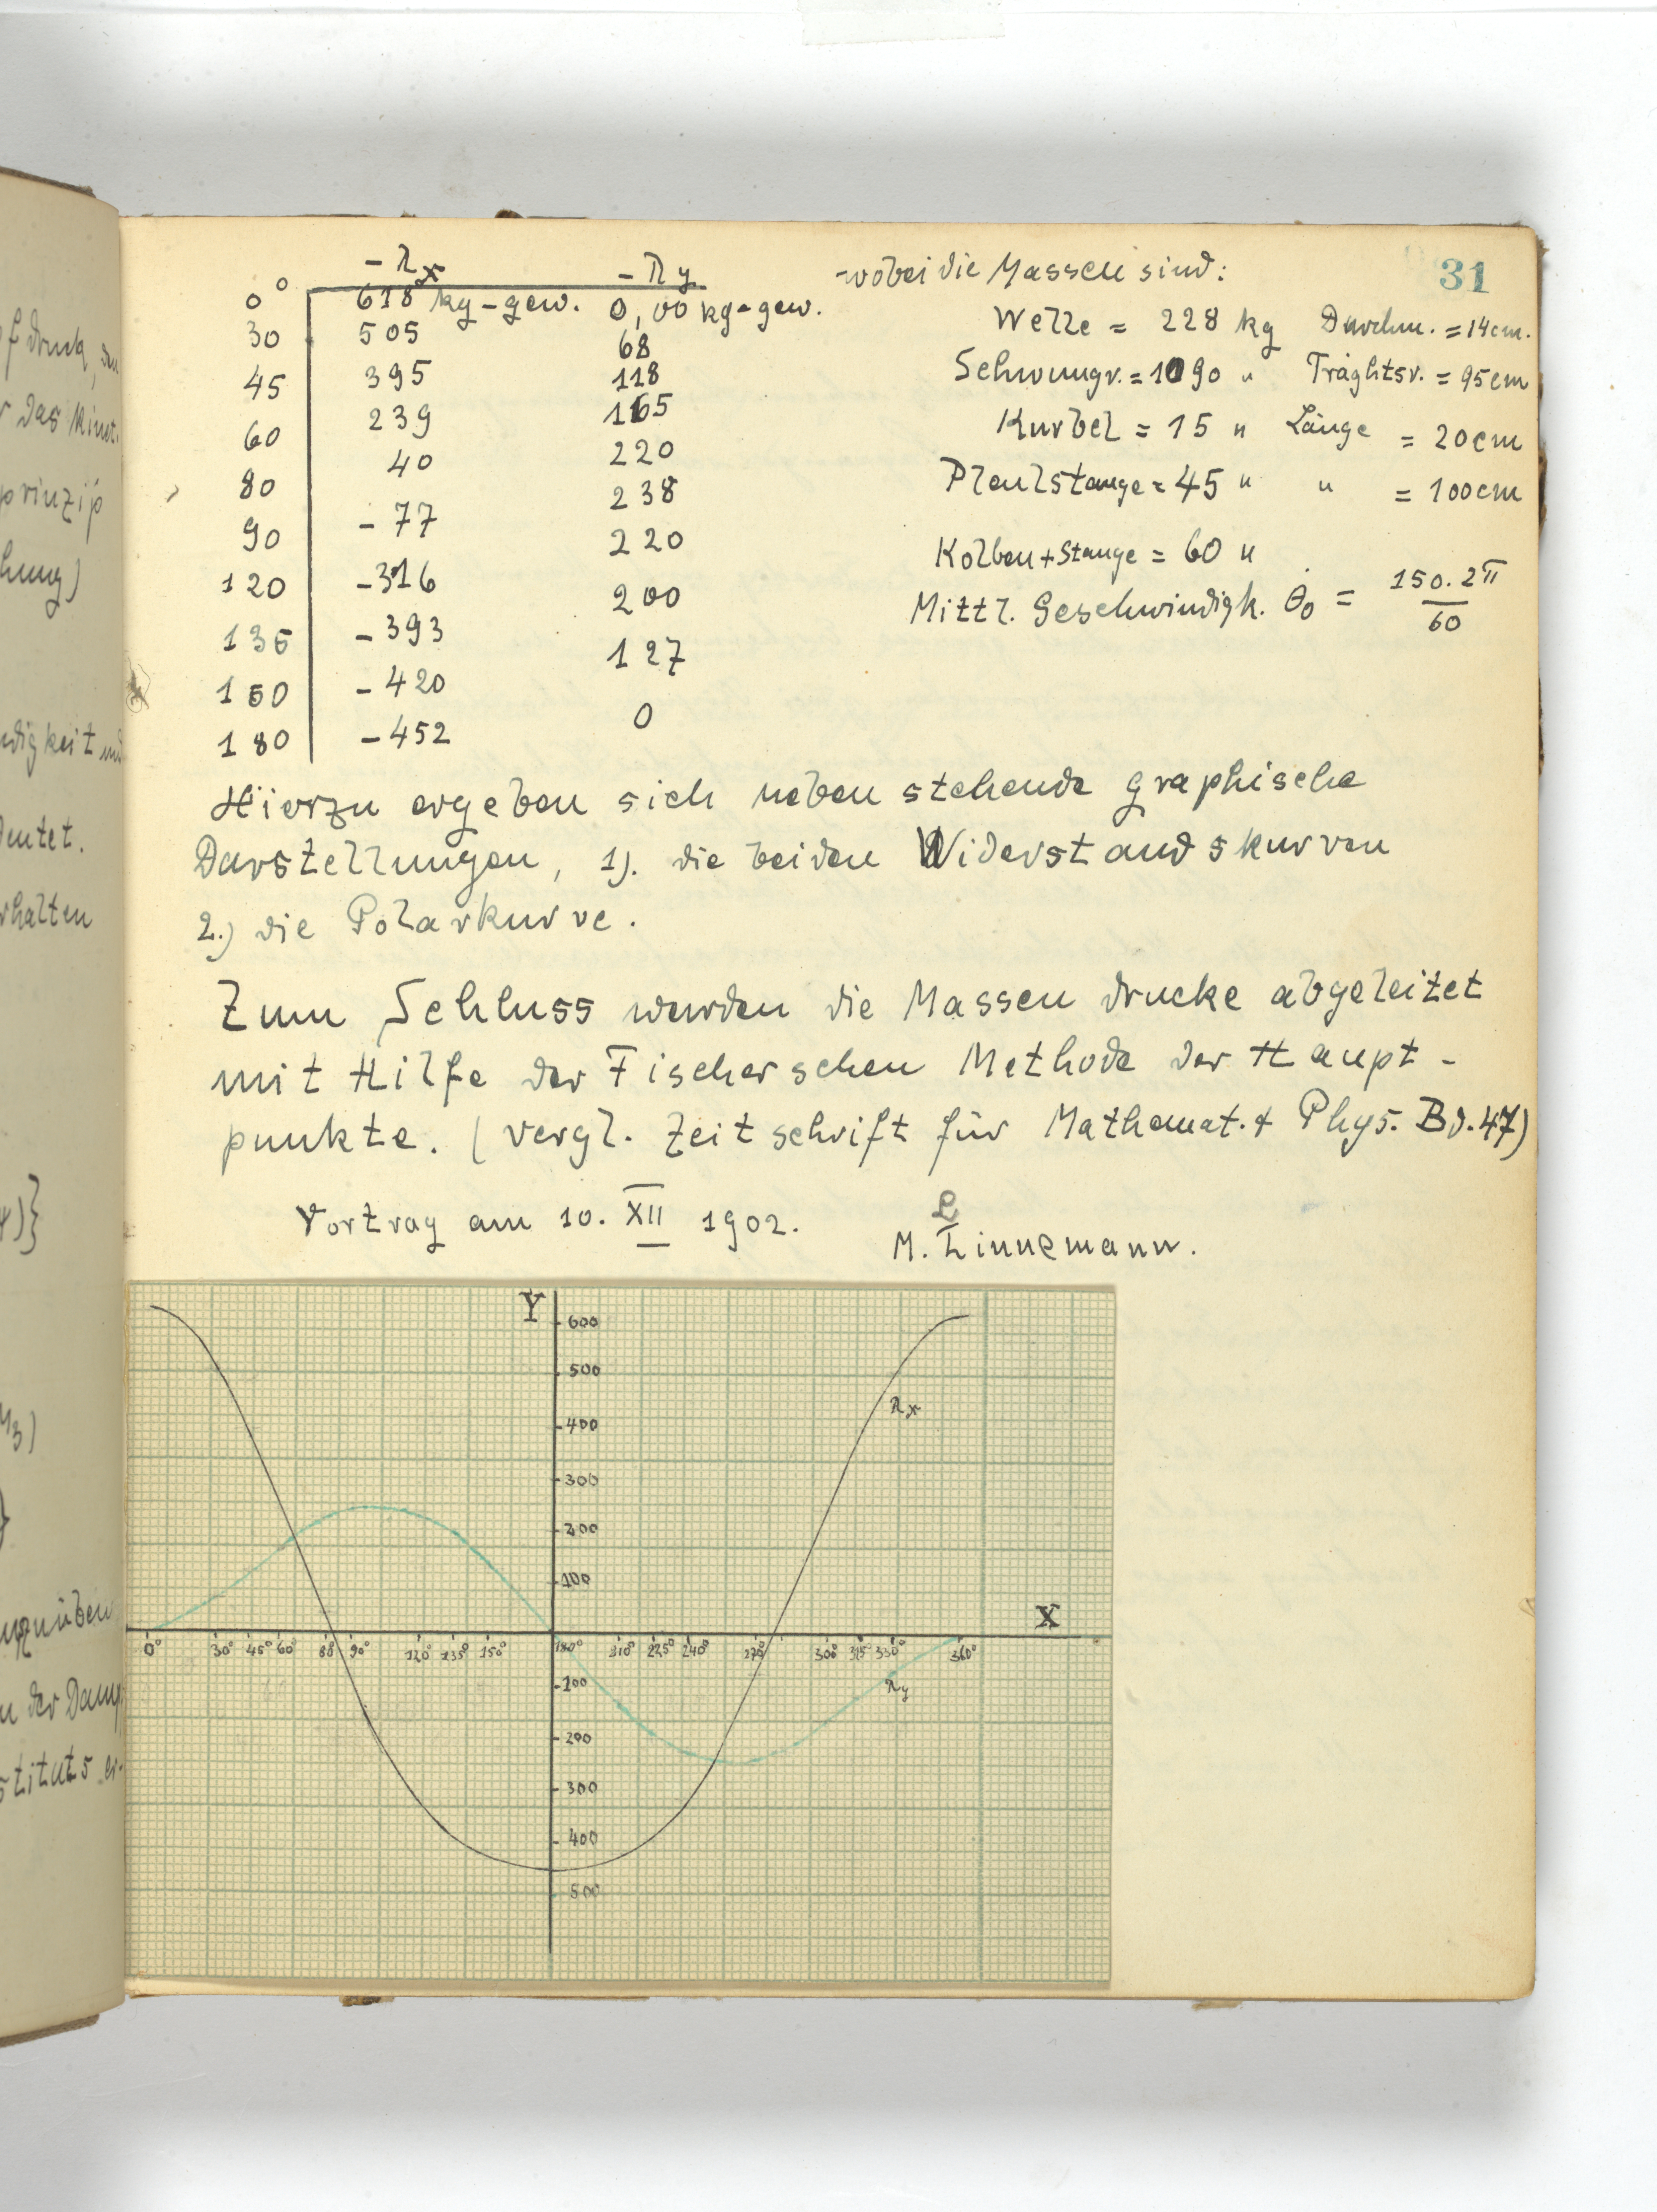 31
- λx - λy
0° 618 kg-gew. 0,00 kg-gew.
30 505 68
45 395 118
60 239 165
80 40 220
90 - 77 238
120 -316 220
135 - 393 200
150 - 420 127
180 - 452 0
wobei die Massen sind:
Welle = 228 kg Durchm. = 14cm.
Schwungr. = 1090 " Träghtsr. = 95cm
Kurbel = 15 " Länge = 20cm
Pleulstange = 45 " " = 100cm
Kolben + Stange = 60 "
Mittl. Geschwindigk. θ̇0 = 150. 2π / 60
Hierzu ergeben sich neben stehende graphische
Darstellungen, 1). die beiden Widerstandskurven
2.) die Polarkurve.
Zum Schluss wurden die Massen drucke abgeleitet
mit Hilfe der Fischerschen Methode der Haupt-
punkte. (vergl. Zeitschrift für Mathemat. + Phys. Bd. 47)
Vortrag am 10. XII 1902.
L
M. Linnemann.
Y
600
500
400
300
200
100
X
0° 30° 45° 60° 88 90° 120° 135° 150° 180° 210° 225° 240° 270° 300° 315° 330° 360°
100
200
300
400
500
λx
λy
druck,
das kinet.
prinzip
hung)
digkeit und
deutet.
rhalten
der Dampf
stituts er-